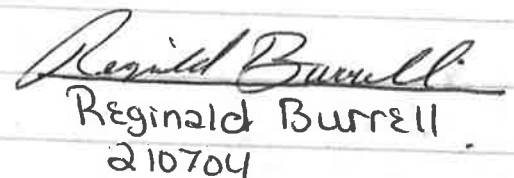 Reginald Burrell
Reginald Burrell
210704